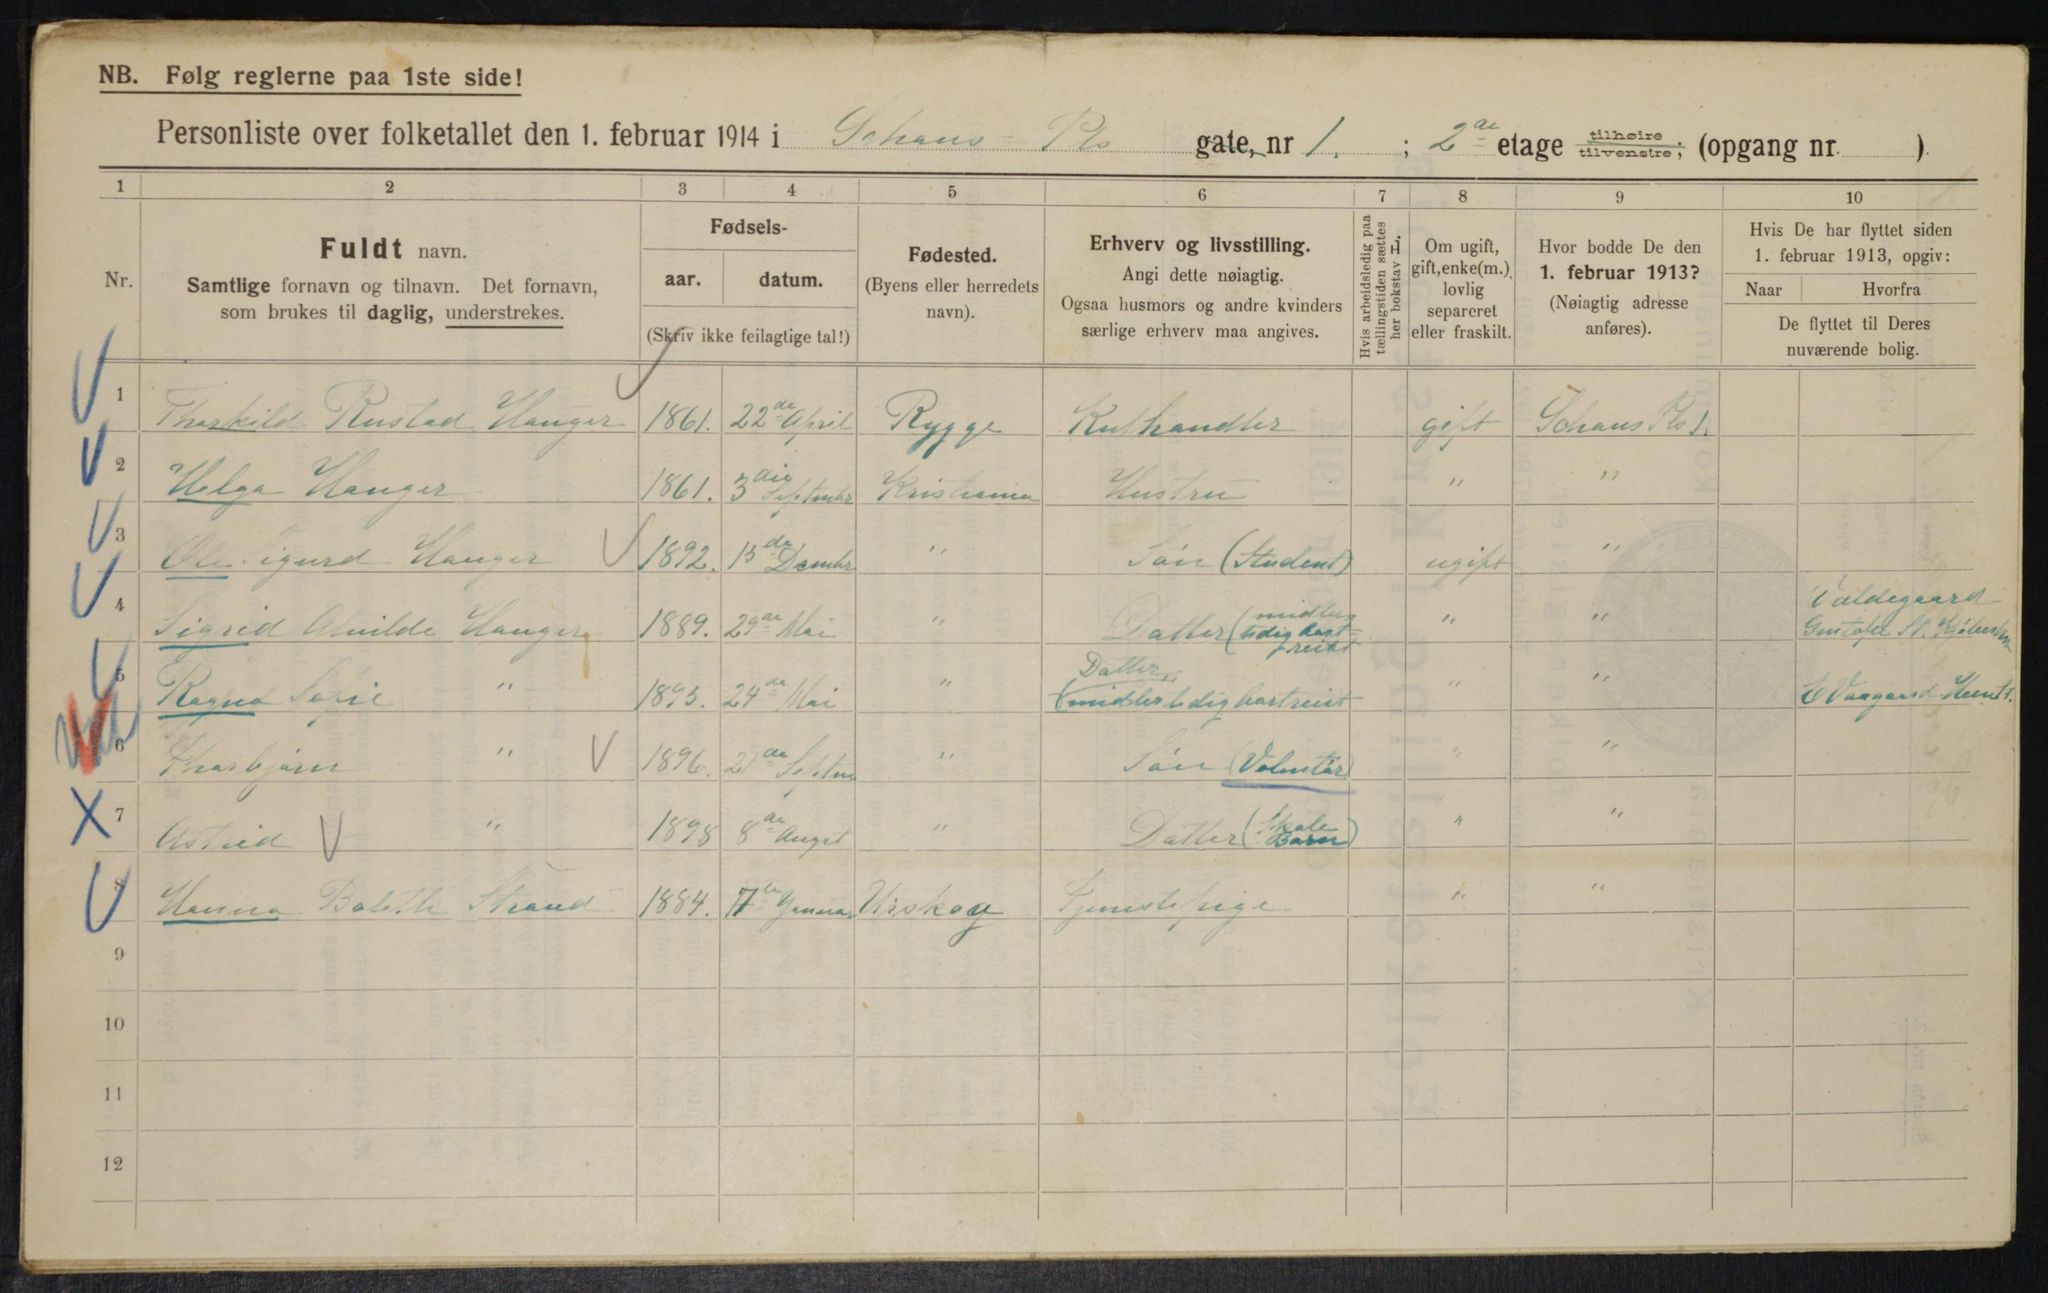 NB. Følg reglerne paa 1ste side!
Personliste over folketallet den 1. februar 1914 i Schous - Pls gate, nr 1. ; 2 etage tilhøire / tilvenstre; (opgang nr. ).
1 2 3 4 5 6 7 8 9 10
Nr.
Fuldt navn.
Samtlige fornavn og tilnavn. Det fornavn,
som brukes til daglig, understrekes.
Fødsels-
aar. datum.
(Skriv ikke feilagtige tal!)
Fødested.
(Byens eller herredets
navn).
Erhverv og livsstilling.
Angi dette nøiagtig.
Ogsaa husmors og andre kvinders
særlige erhverv maa angives.
Hvis arbeidsledig paa
tællingstiden sættes
her bokstav L.
Om ugift,
gift, enke(m.),
lovlig
separeret
eller fraskilt.
Hvor bodde De den
1. februar 1913?
(Nøiagtig adresse
anføres).
Hvis De har flyttet siden
1. februar 1913, opgiv:
Naar Hvorfra
De flyttet til Deres
nuværende bolig.
1 Thorkild Rustad Hauger 1861. 22de April Rygge Kulhandler gift Schous Pls 1.
2 Helga Hauger 1861. 3die Septmbr Kristiania Hustru " "
3 Ole Sigurd Hauger 1892. 15de Dcmbr " Søn (Student) ugift "
4 Sigrid Hauger 1889. 29de Mai " Datter (midler
tidig bort-
reist " " Valdegaard
5 Ragna Sofie " 1895. 24de Mai " Datter
(midlertidig bortreist " "
6 Thorbjørn " 1896. 21de Septm " Søn (Volontør) " "
7 Astrid " 1898 8de Augst " Datter (Skole
Barn) " "
8 Hanna Bolette Strand 1884. 7de Januar Urskog Tjenestepige " "
9
10
11
12